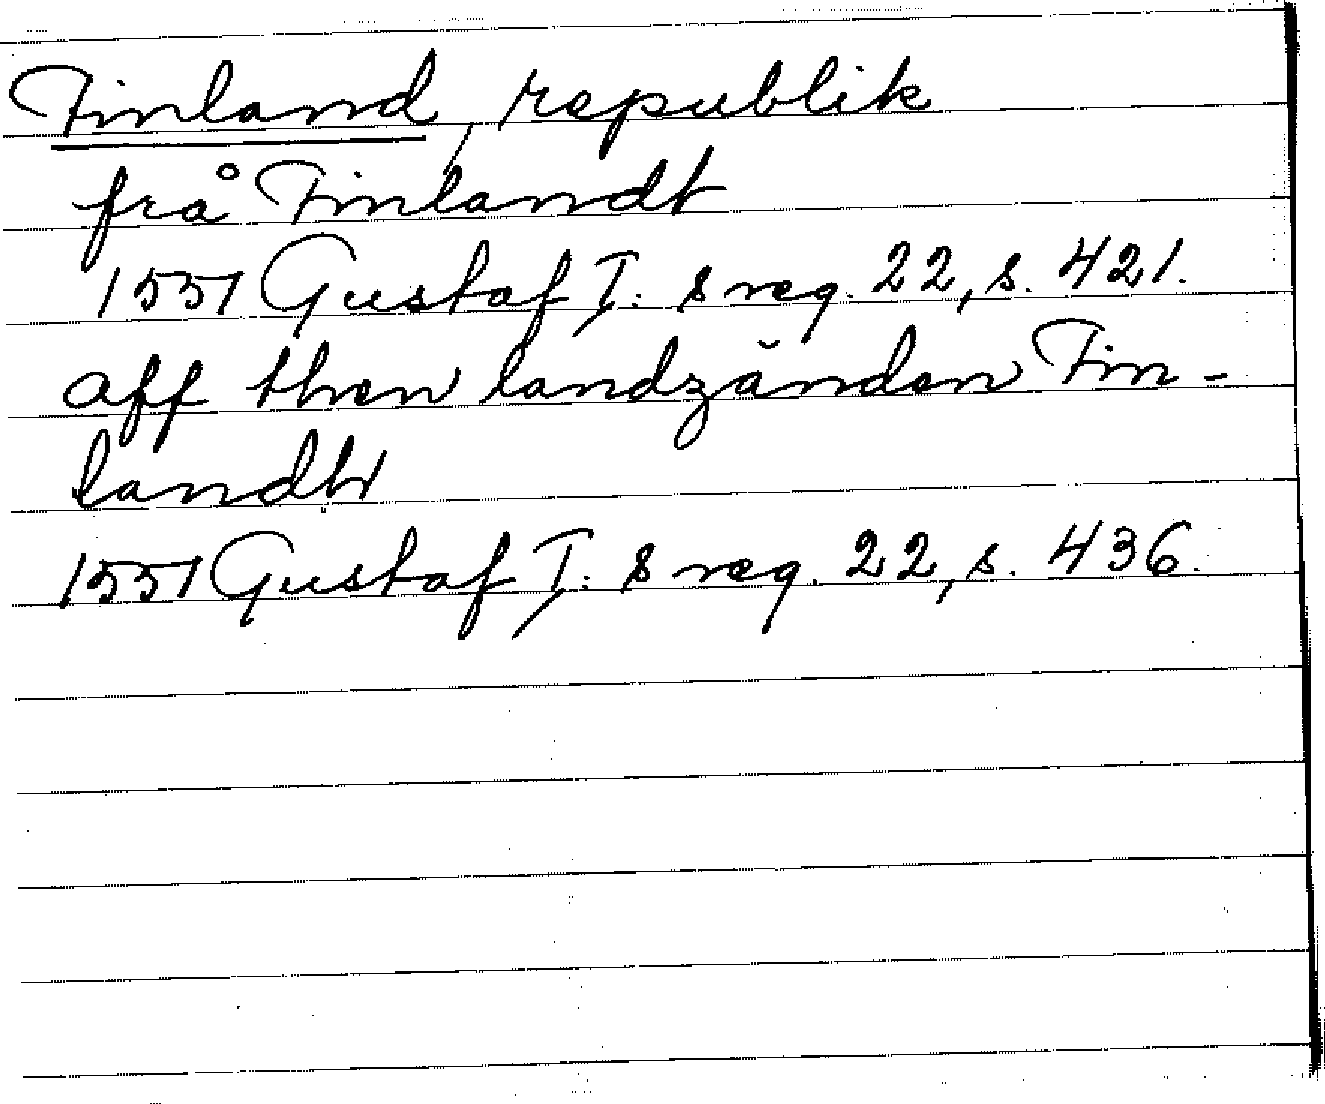 Finland, republik
frå Finlandt
1551 Gustaf I:s reg. 22, s. 421.
aff then landzänden Fin-
landh
1551 Gustaf I:s reg. 22, s. 436.